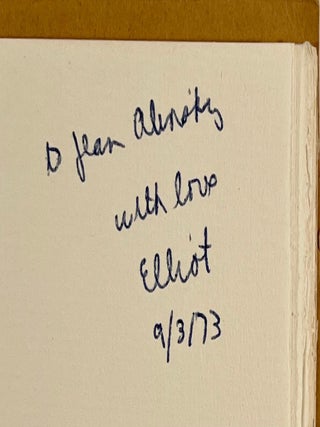 to Jean Alinsky
with love
Elliot
9/3/73